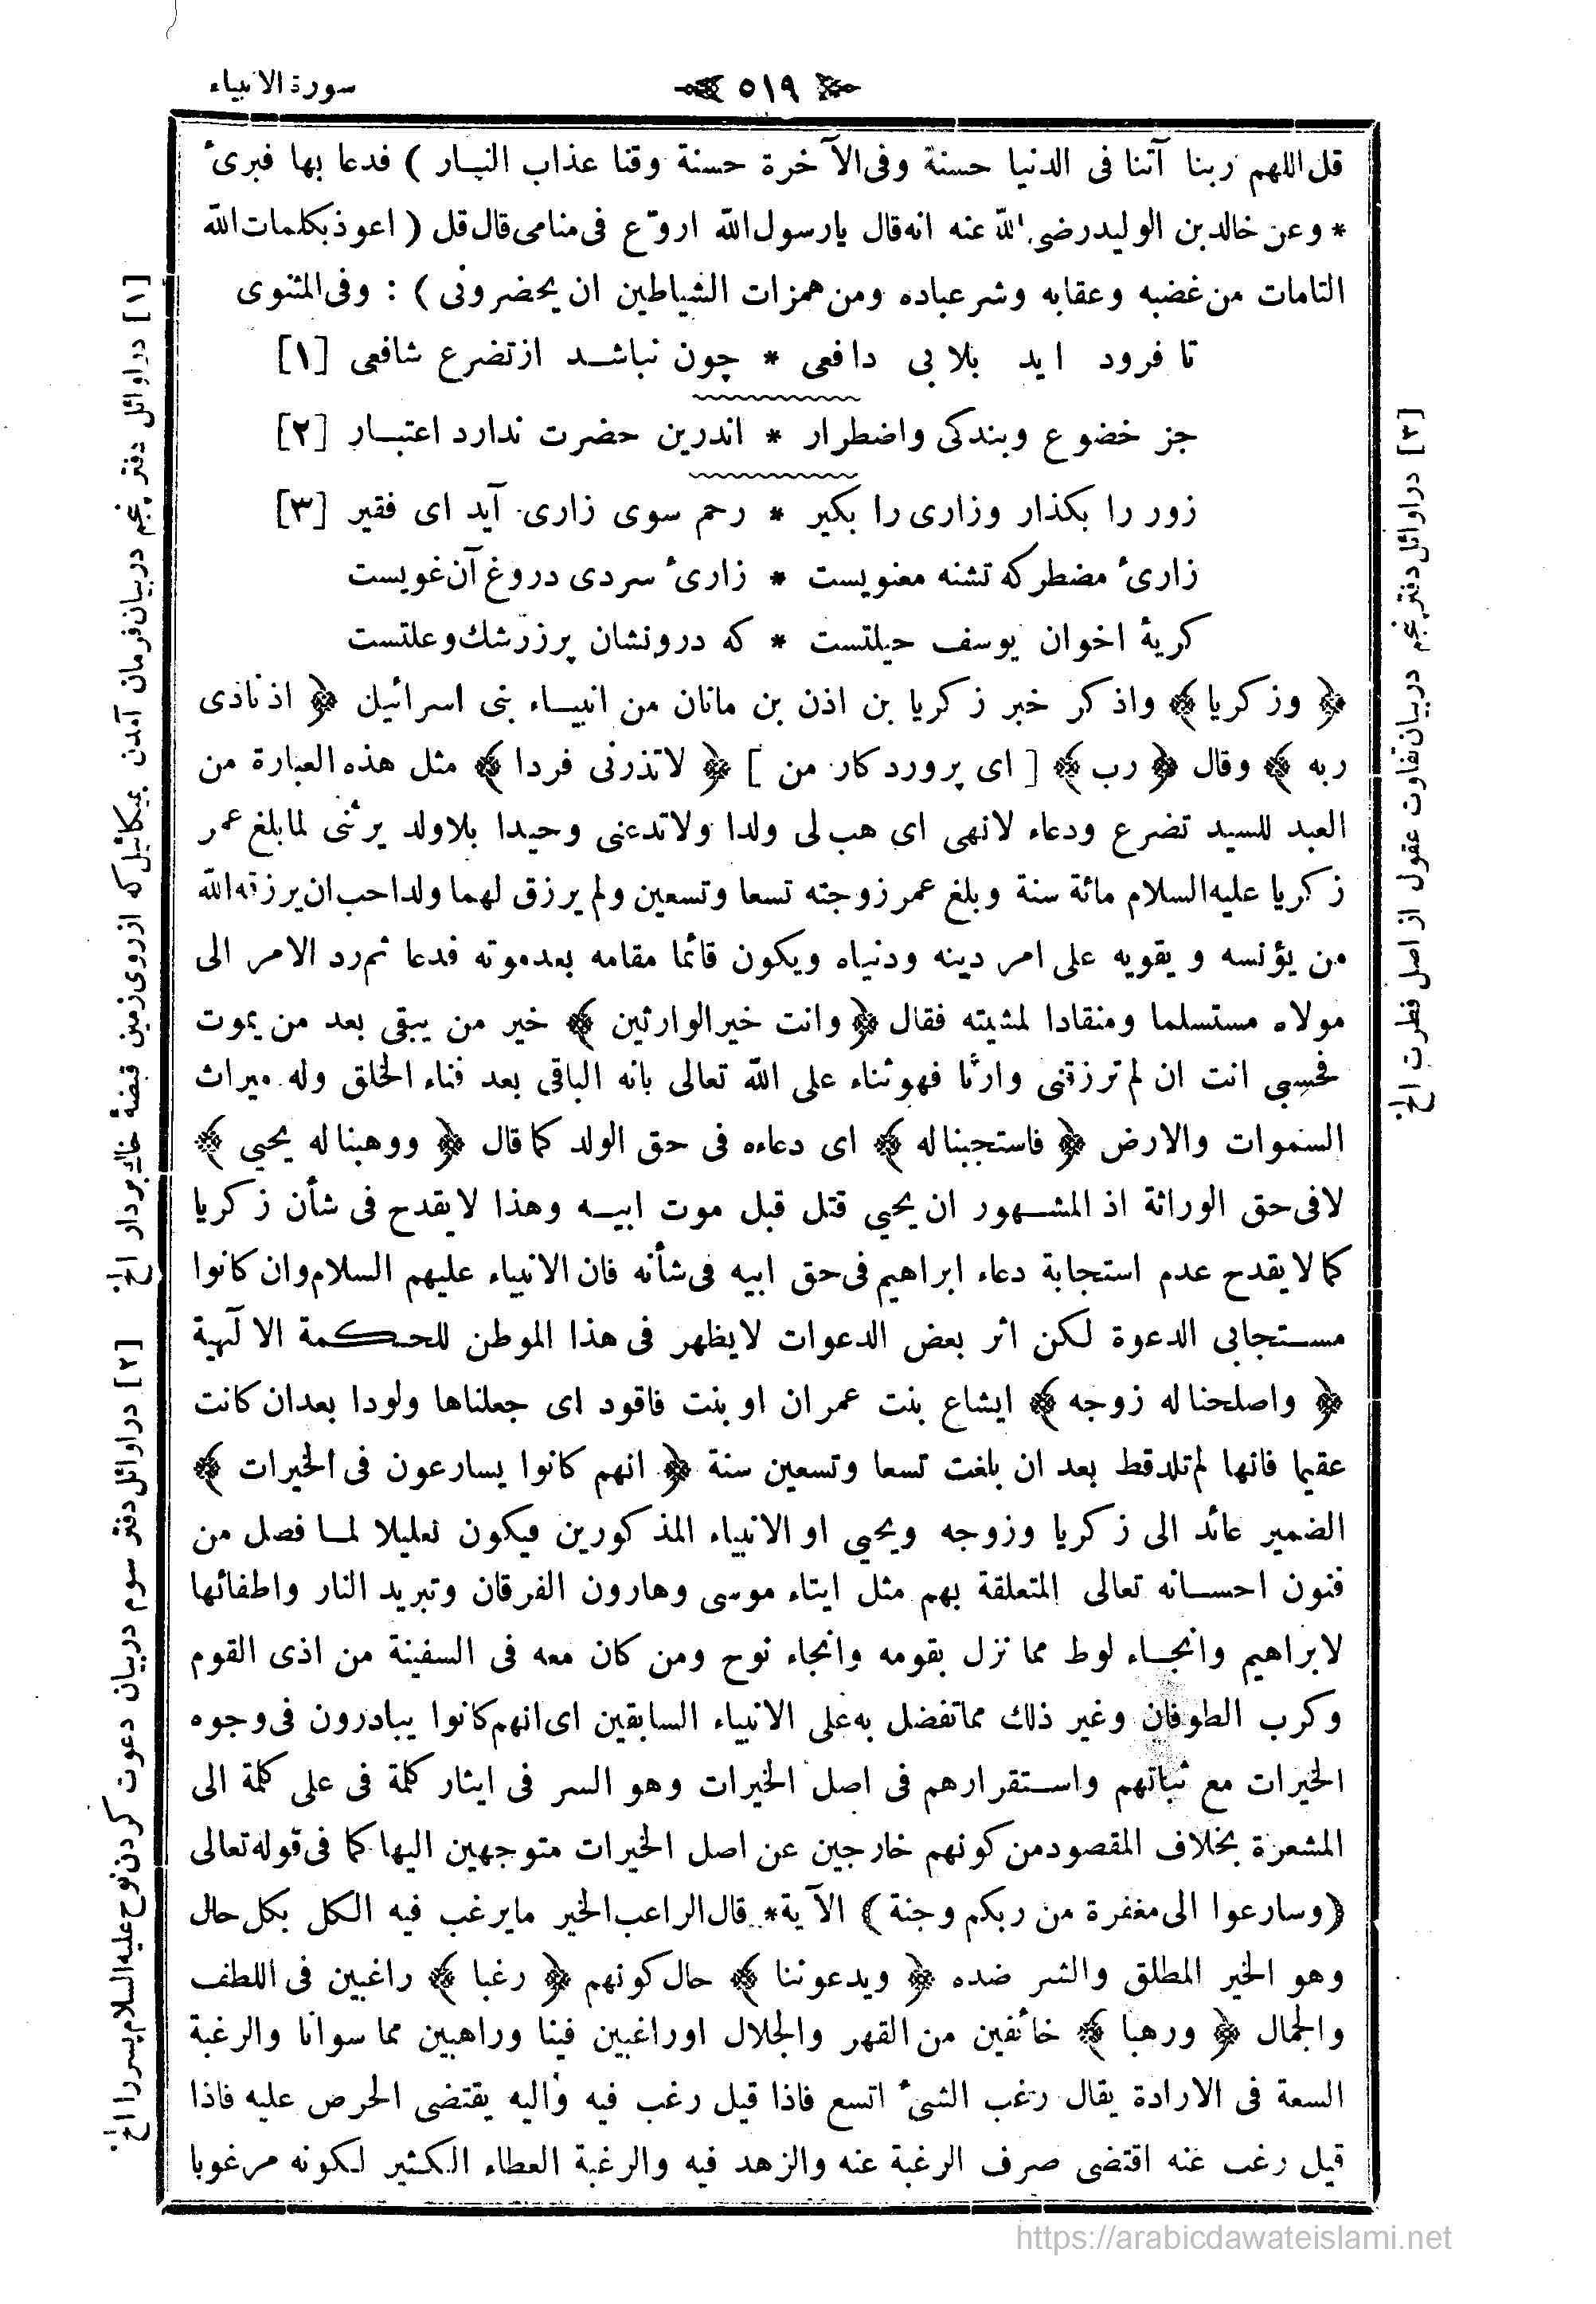 سورة الانبياء
٥١٩
قل اللهم ربنا آتنا فى الدنيا حسنة وفى الآخرة حسنة وقنا عذاب النار ) فدعا بها فبرئ
* وعن خالد بن الوليد رضى الله عنه انه قال يا رسول الله اروّع فى منامى قال قل ( اعوذ بكلمات الله
التامات من غضبه وعقابه وشر عباده ومن همزات الشياطين ان يحضرونى ) : وفى المثنوى
تا فرود ايد بلا بى دافعى * چون نباشد از تضرع شافعى [١]
جز خضوع وبندكى واضطرار * اندرين حضرت ندارد اعتبار [٢]
زور را بكذار وزارى را بكير * رحم سوى زارى آيد اى فقير [٣]
زارئ مضطر كه تشنه معنويست * زارئ سردى دروغ آن غويست
كرية اخوان يوسف حيلتست * كه درونشان پر زرشك وعلتست
﴿ وزكريا ﴾ واذكر خبر زكريا بن اذن بن مانان من انبياء بنى اسرائيل ﴿ اذ نادى
ربه ﴾ وقال ﴿ رب ﴾ [ اى پروردكار من ] ﴿ لاتذرنى فردا ﴾ مثل هذه العبارة من
العبد للسيد تضرع ودعاء لانهى اى هب لى ولدا ولاتدعنى وحيدا بلاولد يرثنى لما بلغ عمر
زكريا عليه السلام مائة سنة وبلغ عمر زوجته تسعا وتسعين ولم يرزق لهما ولد احب ان يرزقه الله
من يؤنسه ويقويه على امر دينه ودنياه ويكون قائما مقامه بعد موته فدعا ثم رد الامر الى
مولاه مستسلما ومنقادا لمشيته فقال ﴿ وانت خير الوارثين ﴾ خير من يبقى بعد من يموت
فحسبى انت ان لم ترزقنى وارثا فهو ثناء على الله تعالى بانه الباقى بعد فناء الخلق وله ميراث
السموات والارض ﴿ فاستجبنا له ﴾ اى دعاءه فى حق الولد كما قال ﴿ ووهبنا له يحيى ﴾
لا فى حق الوراثة اذ المشهور ان يحيى قتل قبل موت ابيه وهذا لايقدح فى شأن زكريا
كما لايقدح عدم استجابة دعاء ابراهيم فى حق ابيه فى شأنه فان الانبياء عليهم السلام وان كانوا
مستجابى الدعوة لكن اثر بعض الدعوات لايظهر فى هذا الموطن للحكمة الآلهية
﴿ واصلحنا له زوجه ﴾ ايشاع بنت عمران او بنت فاقود اى جعلناها ولودا بعد ان كانت
عقيما فانها لم تلد قط بعد ان بلغت تسعا وتسعين سنة ﴿ انهم كانوا يسارعون فى الخيرات ﴾
الضمير عائد الى زكريا وزوجه ويحيى او الانبياء المذكورين فيكون تعليلا لما فصل من
فنون احسانه تعالى المتعلقة بهم مثل ايتاء موسى وهارون الفرقان وتبريد النار واطفائها
لابراهيم وانجاء لوط مما نزل بقومه وانجاء نوح ومن كان معه فى السفينة من اذى القوم
وكرب الطوفان وغير ذلك مما تفضل به على الانبياء السابقين اى انهم كانوا يبادرون فى وجوه
الخيرات مع ثباتهم واستقرارهم فى اصل الخيرات وهو السر فى ايثار كلمة فى على كلمة الى
المشعرة بخلاف المقصود من كونهم خارجين عن اصل الخيرات متوجهين اليها كما فى قوله تعالى
﴿ وسارعوا الى مغفرة من ربكم وجنة ﴾ الآية * قال الراغب الخير مايرغب فيه الكل بكل حال
وهو الخير المطلق والشر ضده ﴿ ويدعوننا ﴾ حال كونهم ﴿ رغبا ﴾ راغبين فى اللطف
والجمال ﴿ ورهبا ﴾ خائفين من القهر والجلال او راغبين فينا وراهبين مما سوانا والرغبة
السعة فى الارادة يقال رغب الشئ اتسع فاذا قيل رغب فيه واليه يقتضى الحرص عليه فاذا
قيل رغب عنه اقتضى صرف الرغبة عنه والزهد فيه والرغبة العطاء الكثير لكونه مرغوبا
[١] در اوائل دفتر پنجم در بيان فرمان آمدن بميكائيل كه از روى زمين قبضۀ خاك بردار الخ
[٢] در اوائل دفتر سوم در بيان دعوت كردن نوح عليه السلام پسر را الخ
[٣] در اوائل دفتر پنجم در بيان تفاوت عقول از اصل فطرت الخ
https://arabicdawateislami.net